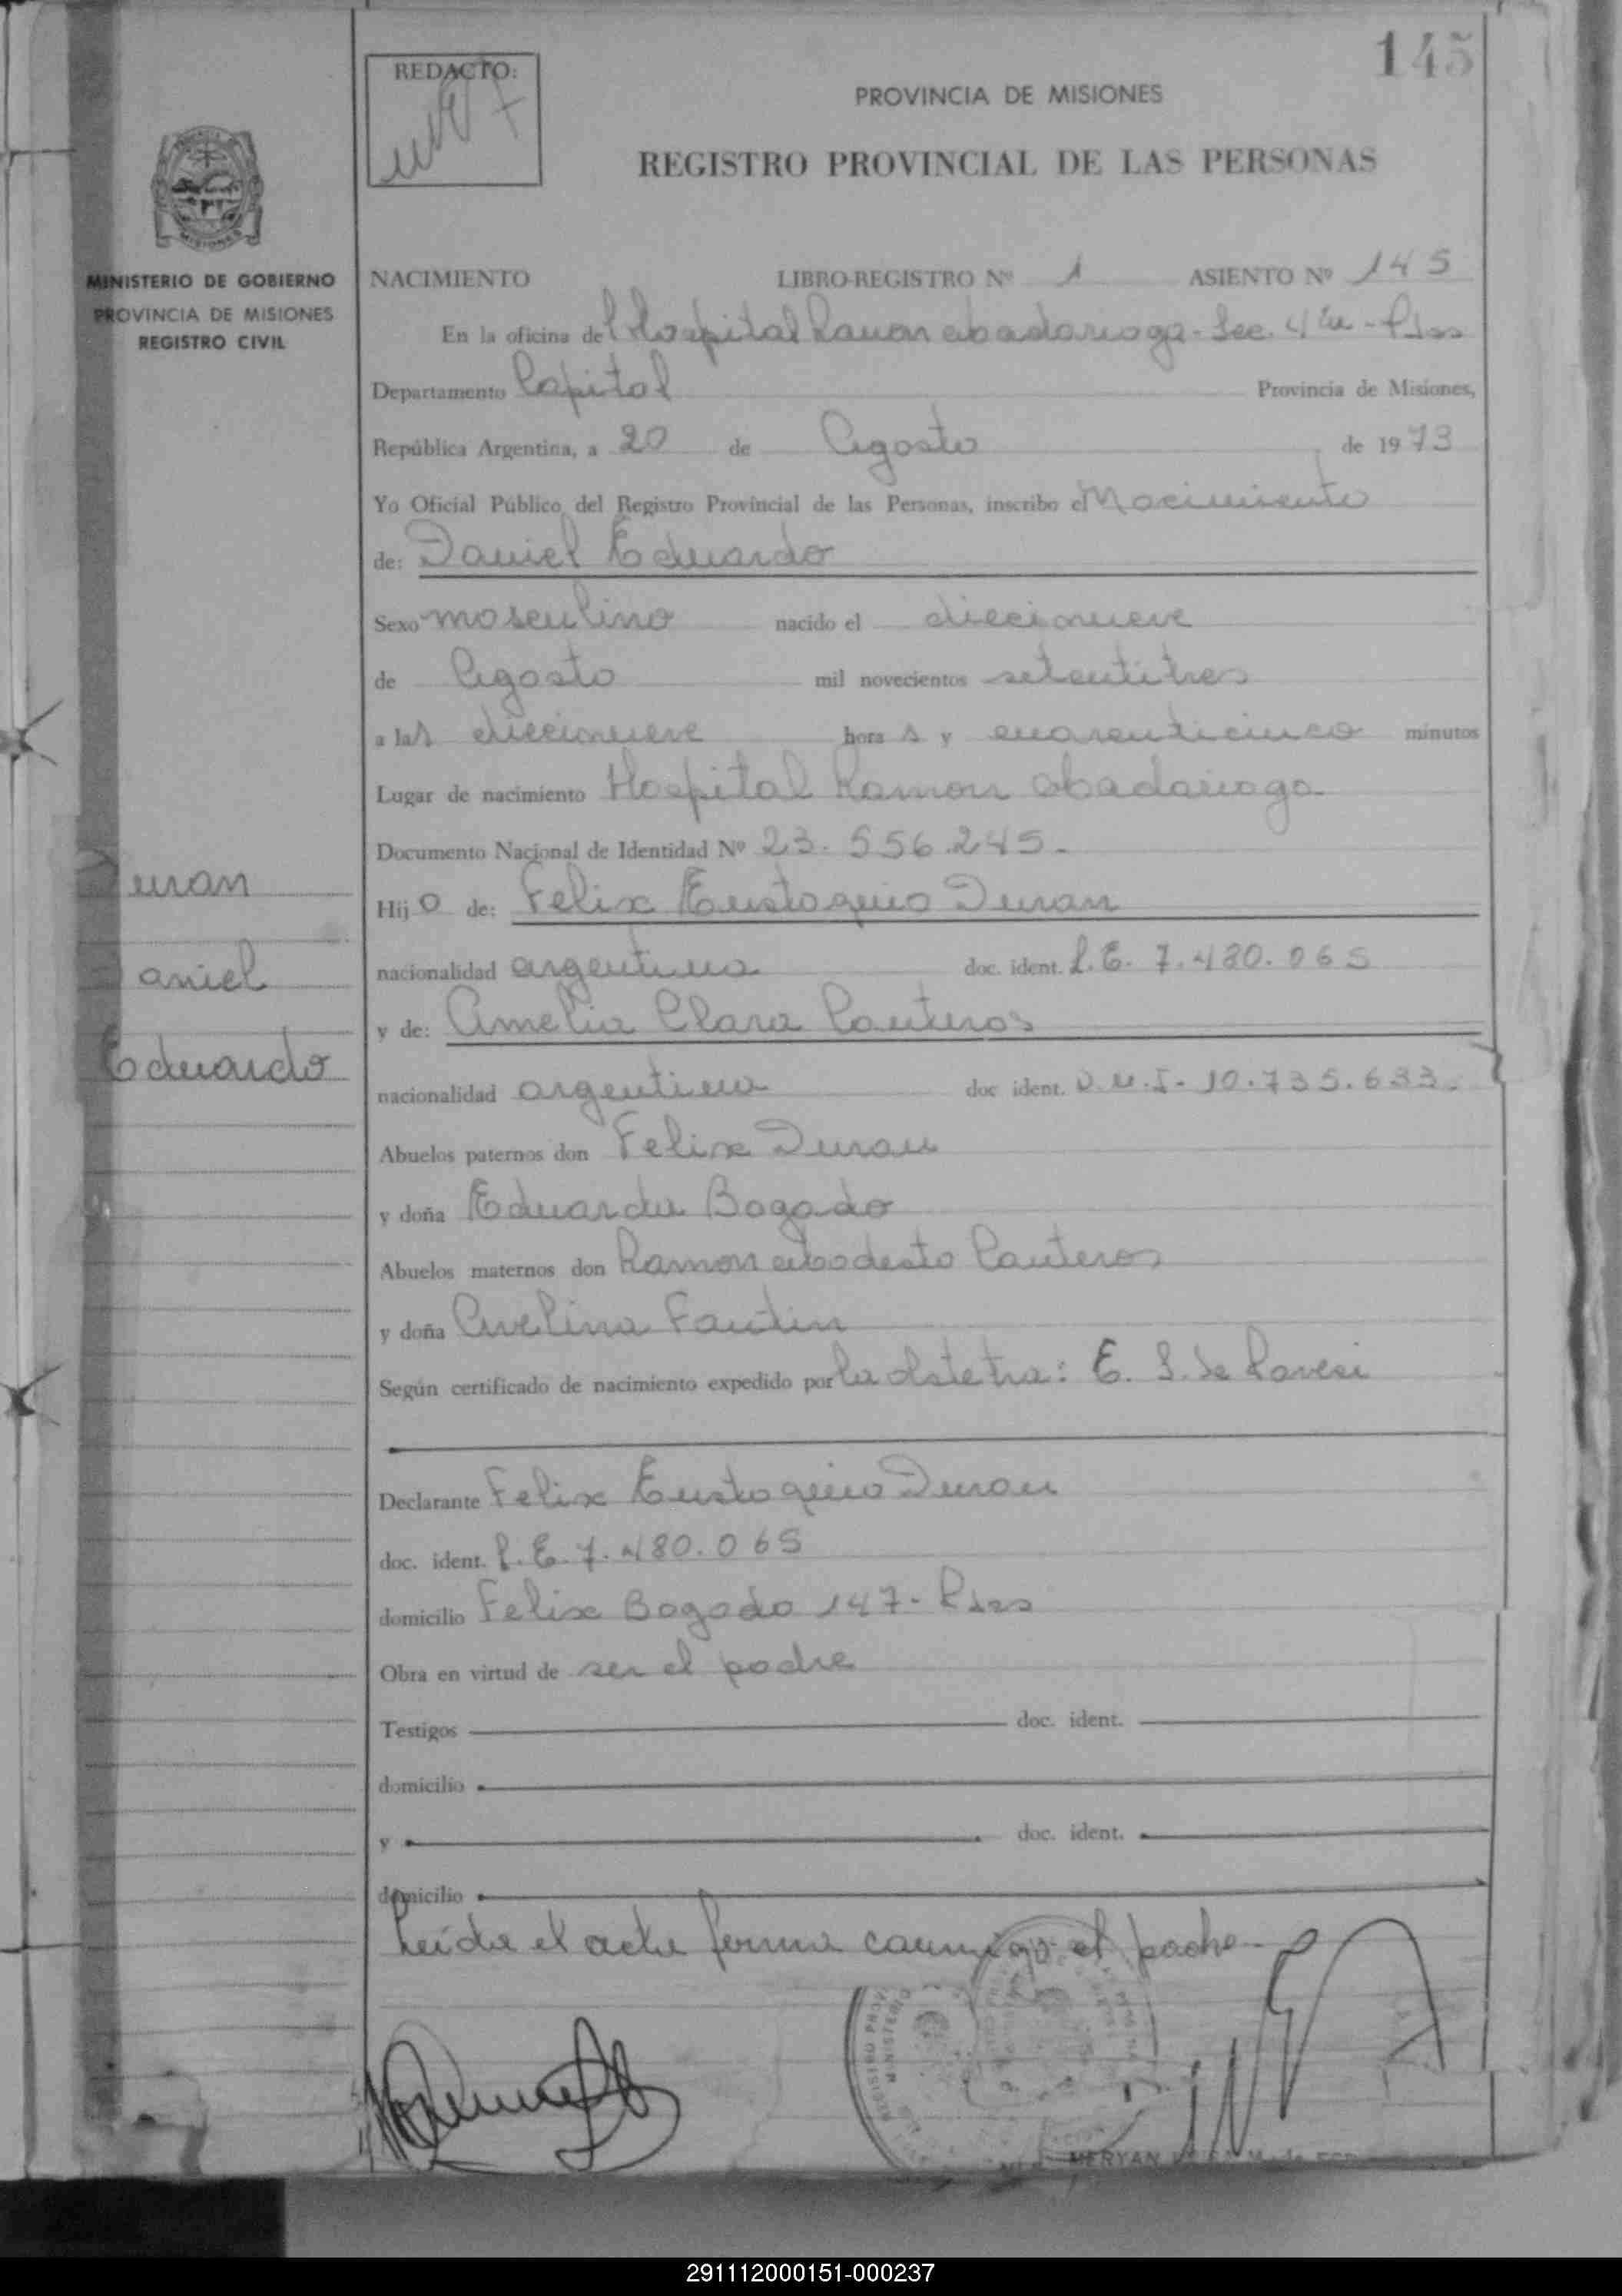 145
REDACTO:
PROVINCIA DE MISIONES
REGISTRO PROVINCIAL DE LAS PERSONAS
MINISTERIO DE GOBIERNO
PROVINCIA DE MISIONES
REGISTRO CIVIL
NACIMIENTO LIBRO-REGISTRO Nº 1 ASIENTO Nº 145
En la oficina del Hospital Ramon Madariaga - Sec. 4ta - Pdas
Departamento Capital Provincia de Misiones,
República Argentina, a 20 de Agosto de 1973
Yo Oficial Público del Registro Provincial de las Personas, inscribo el Nacimiento
de: Daniel Eduardo
Sexo masculino nacido el diecinueve
de Agosto mil novecientos setentitres
a las diecinueve hora s y cuarenticinco minutos
Lugar de nacimiento Hospital Ramon Madariaga
Documento Nacional de Identidad Nº 23.556.245.-
Duran
Daniel
Eduardo
Hijo de: Felix Eustoquio Duran
nacionalidad argentina doc. ident. L.E. 7.480.065
y de: Amelia Clara Canteros
nacionalidad argentina doc ident. D.N.I- 10.735.633.
Abuelos paternos don Felix Duran
y doña Eduarda Bogado
Abuelos maternos don Ramon Modesto Canteros
y doña Avelina Fantin
Según certificado de nacimiento expedido por la obstetra: E. S. de
Declarante Felix Eustoquio Duran
doc. ident. L.E. 7.480.065
domicilio Felix Bogado 147- Pdas
Obra en virtud de ser el padre
Testigos doc. ident.
domicilio
y doc. ident.
domicilio
Leída el acta firma conmigo el padre-
MERYAN
291112000151-000237